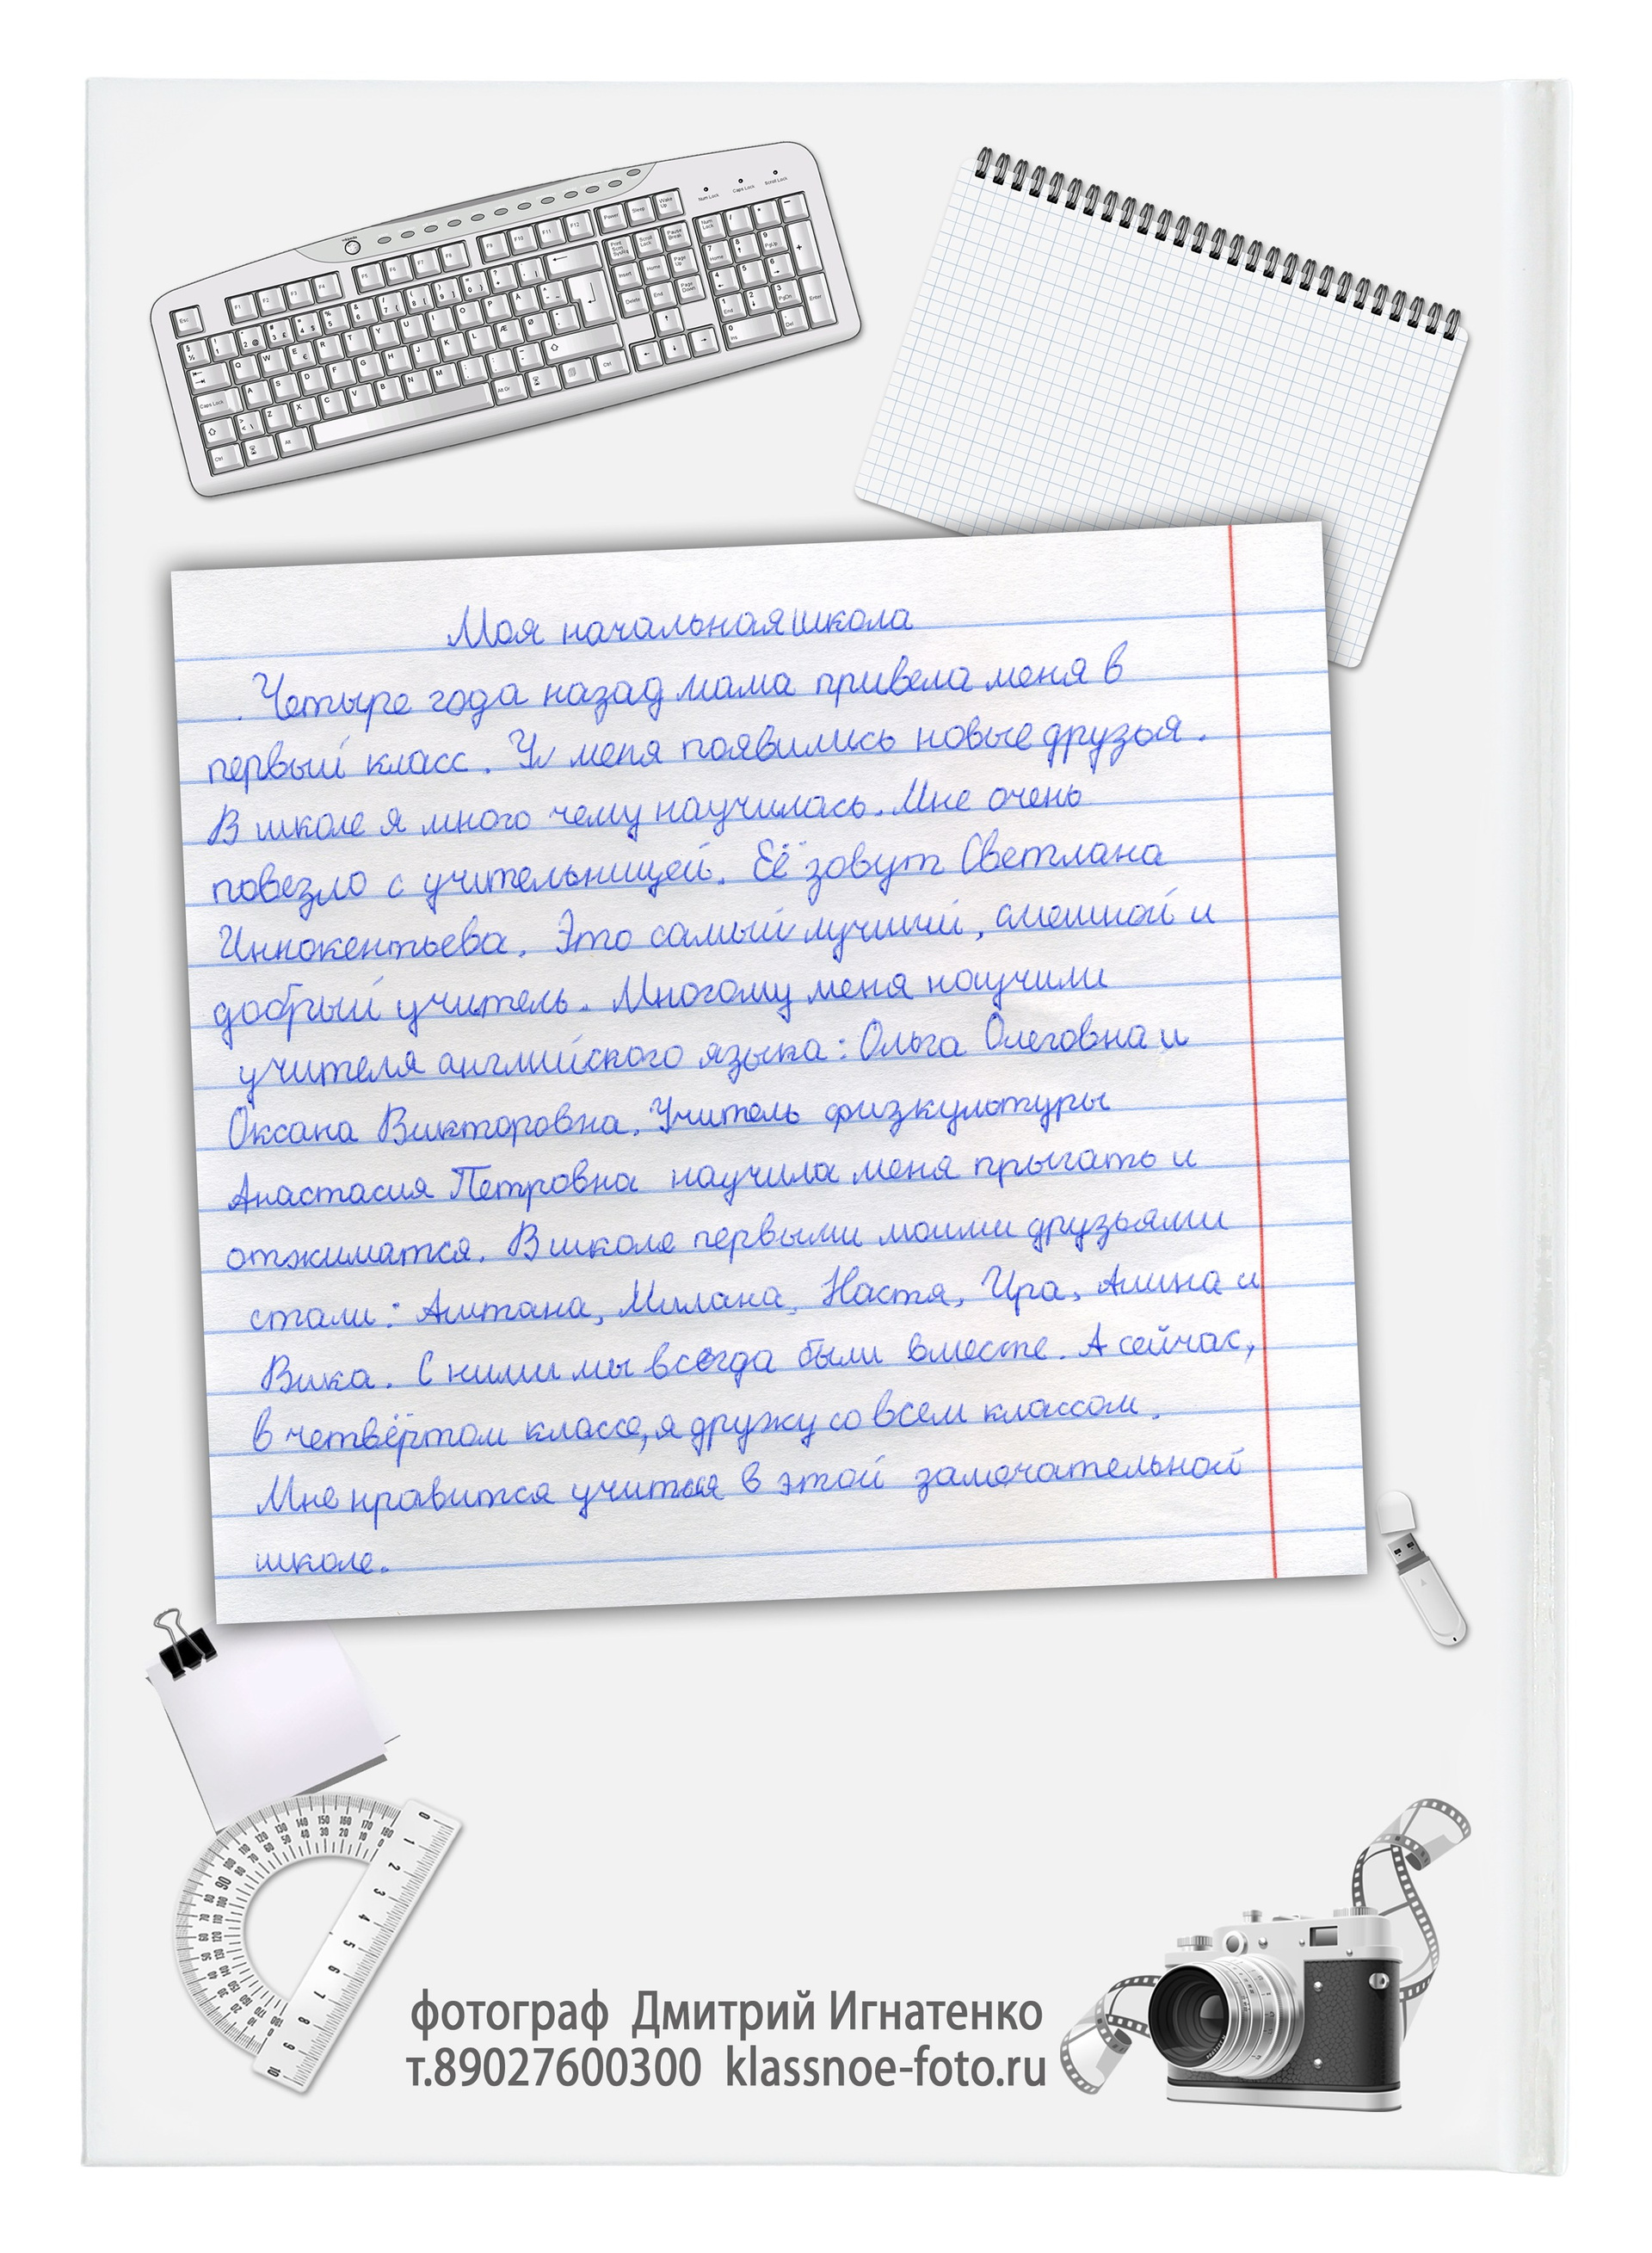 Моя начальная школа
Четыре года назад мама привела меня в
первый класс. У меня появились новые друзья.
В школе я много чему научилась. Мне очень
повезло с учительницей. Её зовут Светлана
Иннокентьева. Это самый лучший, смешной и
добрый учитель. Многому меня научили
учителя английского языка: Ольга Олеговна и
Оксана Викторовна. Учитель физкультуры
Анастасия Петровна научила меня прыгать и
отжиматся. В школе первыми моими друзьями
стали: Милана, Настя, Ира, Алина и
Вика. С ними мы всегда были вместе. А сейчас,
в четвёртом классе, я дружу со всем классом.
Мне нравится учится в этой замечательной
школе.
фотограф Дмитрий Игнатенко
т.89027600300 klassnoe-foto.ru